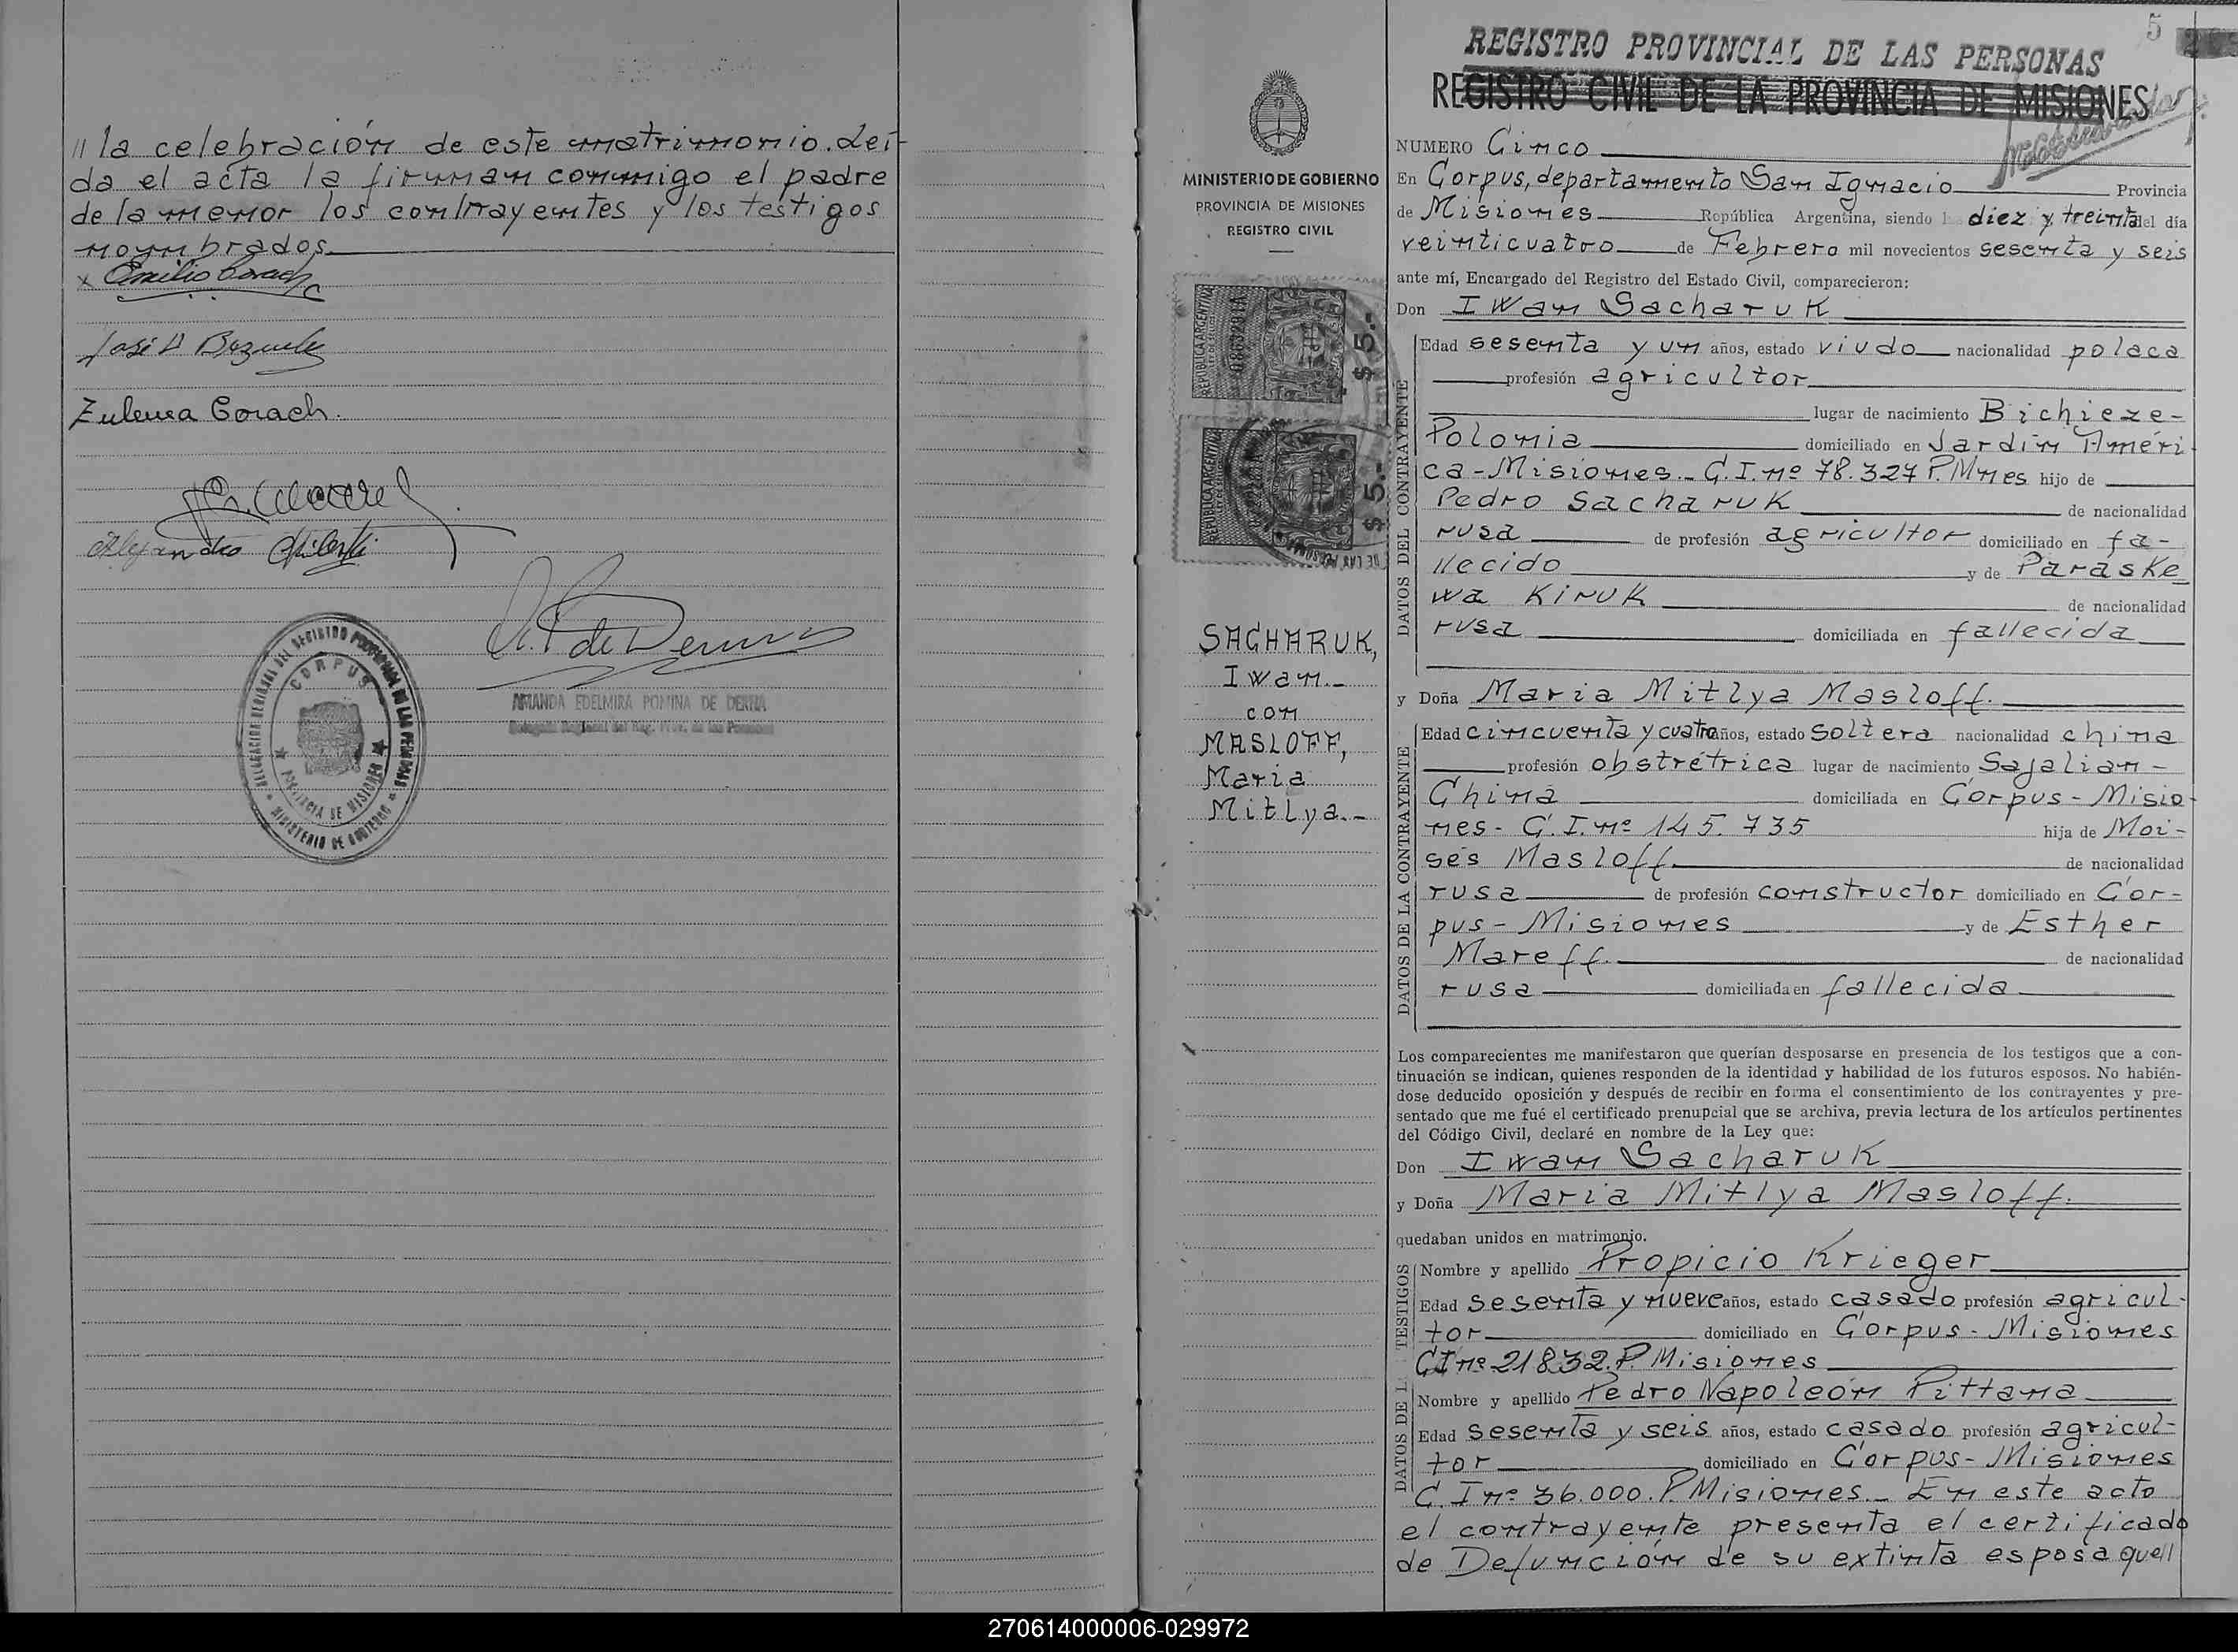 // la celebración de este matrimonio. Leí-
da el acta la firman conmigo el padre
de la menor los contrayentes y los testigos
nombrados
x Emilio Corach
José
Zulema Corach.
Alejandro
CORPUS
PROVINCIA DE MISIONES
MINISTERIO DE GOBIERNO
DE DERNA
5
REGISTRO PROVINCIAL DE LAS PERSONAS
REGISTRO CIVIL DE LA PROVINCIA DE MISIONES
MINISTERIO DE GOBIERNO
PROVINCIA DE MISIONES
REGISTRO CIVIL
REPUBLICA ARGENTINA
$ 5.-
REPUBLICA ARGENTINA
$ 5.-
SACHARUK,
Iwan.-
con
MASLOFF,
Maria
Mitlya.-
NUMERO Cinco
En Corpus, departamento San Ignacio Provincia
de Misiones República Argentina, siendo l diez y treinta al día
veinticuatro de Febrero mil novecientos sesenta y seis
ante mí, Encargado del Registro del Estado Civil, comparecieron:
Don Iwan Sacharuk
DATOS DEL CONTRAYENTE
Edad sesenta y un años, estado viudo nacionalidad polaca
profesión agricultor
lugar de nacimiento Bichieze-
Polonia domiciliado en Jardín Améri
ca-Misiones.- C.I.nº 78.327 P.Mnes hijo de
Pedro Sacharuk de nacionalidad
rusa de profesión agricultor domiciliado en fa-
llecido y de Paraske
wa Kiruk de nacionalidad
rusa domiciliada en fallecida
y Doña Maria Mitlya Masloff.
DATOS DE LA CONTRAYENTE
Edad cincuenta y cuatro años, estado soltera nacionalidad china
profesión obstrétrica lugar de nacimiento Sajalian-
China domiciliada en Corpus-Misio-
nes- C.I.nº 145.735 hija de Moi-
sés Masloff. de nacionalidad
rusa de profesión constructor domiciliado en Cor-
pus-Misiones y de Esther
Mareff. de nacionalidad
rusa domiciliada en fallecida
Los comparecientes me manifestaron que querían desposarse en presencia de los testigos que a con-
tinuación se indican, quienes responden de la identidad y habilidad de los futuros esposos. No habién-
dose deducido oposición y después de recibir en forma el consentimiento de los contrayentes y pre-
sentado que me fué el certificado prenupcial que se archiva, previa lectura de los artículos pertinentes
del Código Civil, declaré en nombre de la Ley que:
Don Iwan Sacharuk
y Doña Maria Mitlya Masloff.
quedaban unidos en matrimonio.
DATOS DE L TESTIGOS
Nombre y apellido Propicio Krieger
Edad sesenta y nueve años, estado casado profesión agricul-
tor domiciliado en Corpus-Misiones
CI nº 21832.P.Misiones
Nombre y apellido Pedro Napoleón Pittana
Edad sesenta y seis años, estado casado profesión agricul-
tor domiciliado en Corpus-Misiones
C.I nº 36.000.P.Misiones.- En este acto
el contrayente presenta el certificado
de Defunción de su extinta esposa que//
270614000006-029972